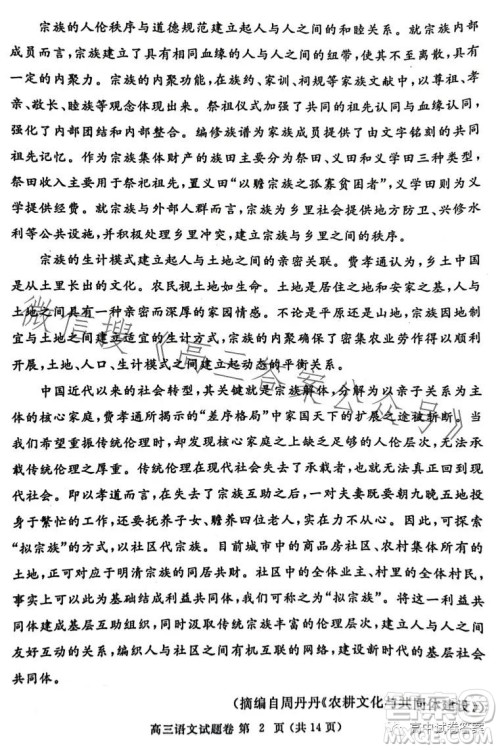 宗族的人伦秩序与道德规范建立起人与人之间的和睦关系。就宗族内部
成员而言，宗族建立了具有相同血缘的人与人之间的纽带，使其不至离散，具有
一定的内聚力。宗族的内聚功能，在族约、家训、祠规等家族文献中，以尊祖、孝
亲、敬长、睦族等观念体现出来。祭祖仪式加强了共同的祖先认同与血缘认同，
强化了内部团结与互助合作。编修族谱为家族成员提供了由文字铭刻的共同
祖先记忆。作为宗族集体财产的族田主要分为祭田、义田和学田三种类型，
祭田收入主要用于祭祀祖先，置义田“以赡宗族之孤寡贫困者”，义学则为宗族义
学提供经费。就宗族与外部人群而言，宗族为乡里社会提供地方防卫、兴修水
利等公共设施，并积极处理乡里冲突，建立宗族与乡里之间的秩序。
宗族的生计模式建立起人与土地之间的亲密关联。费孝通认为，乡土中国
是从土里长出来的文化。农民依恋土地，土地是他们的居住之地和安家之基，人与
土地之间具有一种亲密而深厚的家园情感。不论是平原还是山地，宗族因地制
宜与土地之间建立适宜的生计方式，宗族
密集农业劳作得以顺利
开展，土地、人口、生计模式之间建立起动态的平衡关系。
中国近代以来的社会转型，其关键就是宗族解体，分解为以亲子关系为主
体的核心家庭，费孝通所示的“差序格局”中家国天下的扩展之途被斩断。当
我们希望重振传统伦理时，却发现核心家庭之上缺乏足够的人伦层次，无法承
载传统伦理
现代社会
即以孝道而言，在失去了宗族互助之后，一对夫妻既要朝九晚五地投
身于繁忙的工作，还要抚养子女、赡养四位老人，实在力有不逮。由此，可探索
“拟宗族”的方式，以社区代宗族。目前城市中的商品房社区、农村集体所有的
土地，正可对应于明清宗族的同居共财。社区中的全体业主、村里的全体村民，
事实上可以此为基础结成利益共同体，我们可称之为“拟宗族”。将这一利益共
同体建成基层互助组织，同时汲取传统宗族人伦与道德观念，建立人与人之间
友好互助的关系，人与土地之间的亲密关联，建设新时代的基层共同体。
（摘编自周丹丹《农耕文化与共同体建设》）
高三语文试题卷 第 2 页（共 14 页）
微信搜《高三答案公众号》
高中试卷答案